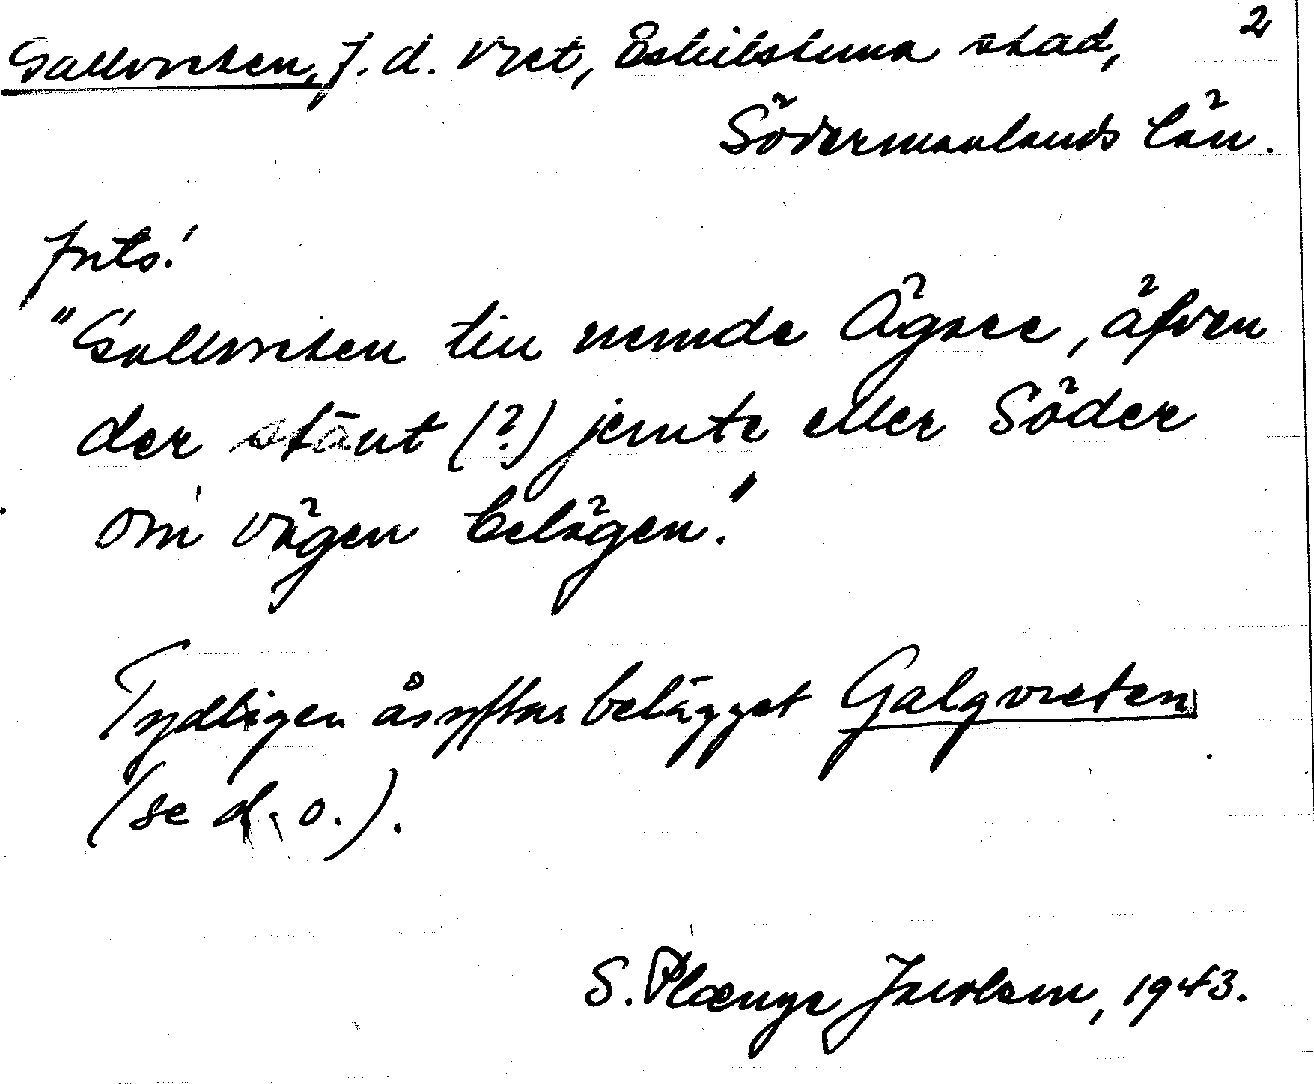 Gallvreten, f.d. vret, Eskilstuna stad, 2
Södermanlands län.
forts.:
"Gallvreten till nemde Ägare, äfven
der stänt (?) jemte eller Söder
om vägen belägen."
Tydligen åsyftar belägget Galgvreten
(se d.o.).
S. Plænge Jacobson, 1943.